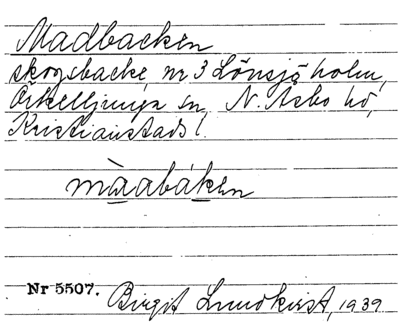 Madbacken
skogsbacke, nr 3 Lönsjöholm,
Örkelljunga sn, N. Åsbo hd,
Kristianstads l.
màabáken
Nr 5507.
Birgit Lundkvist, 1939